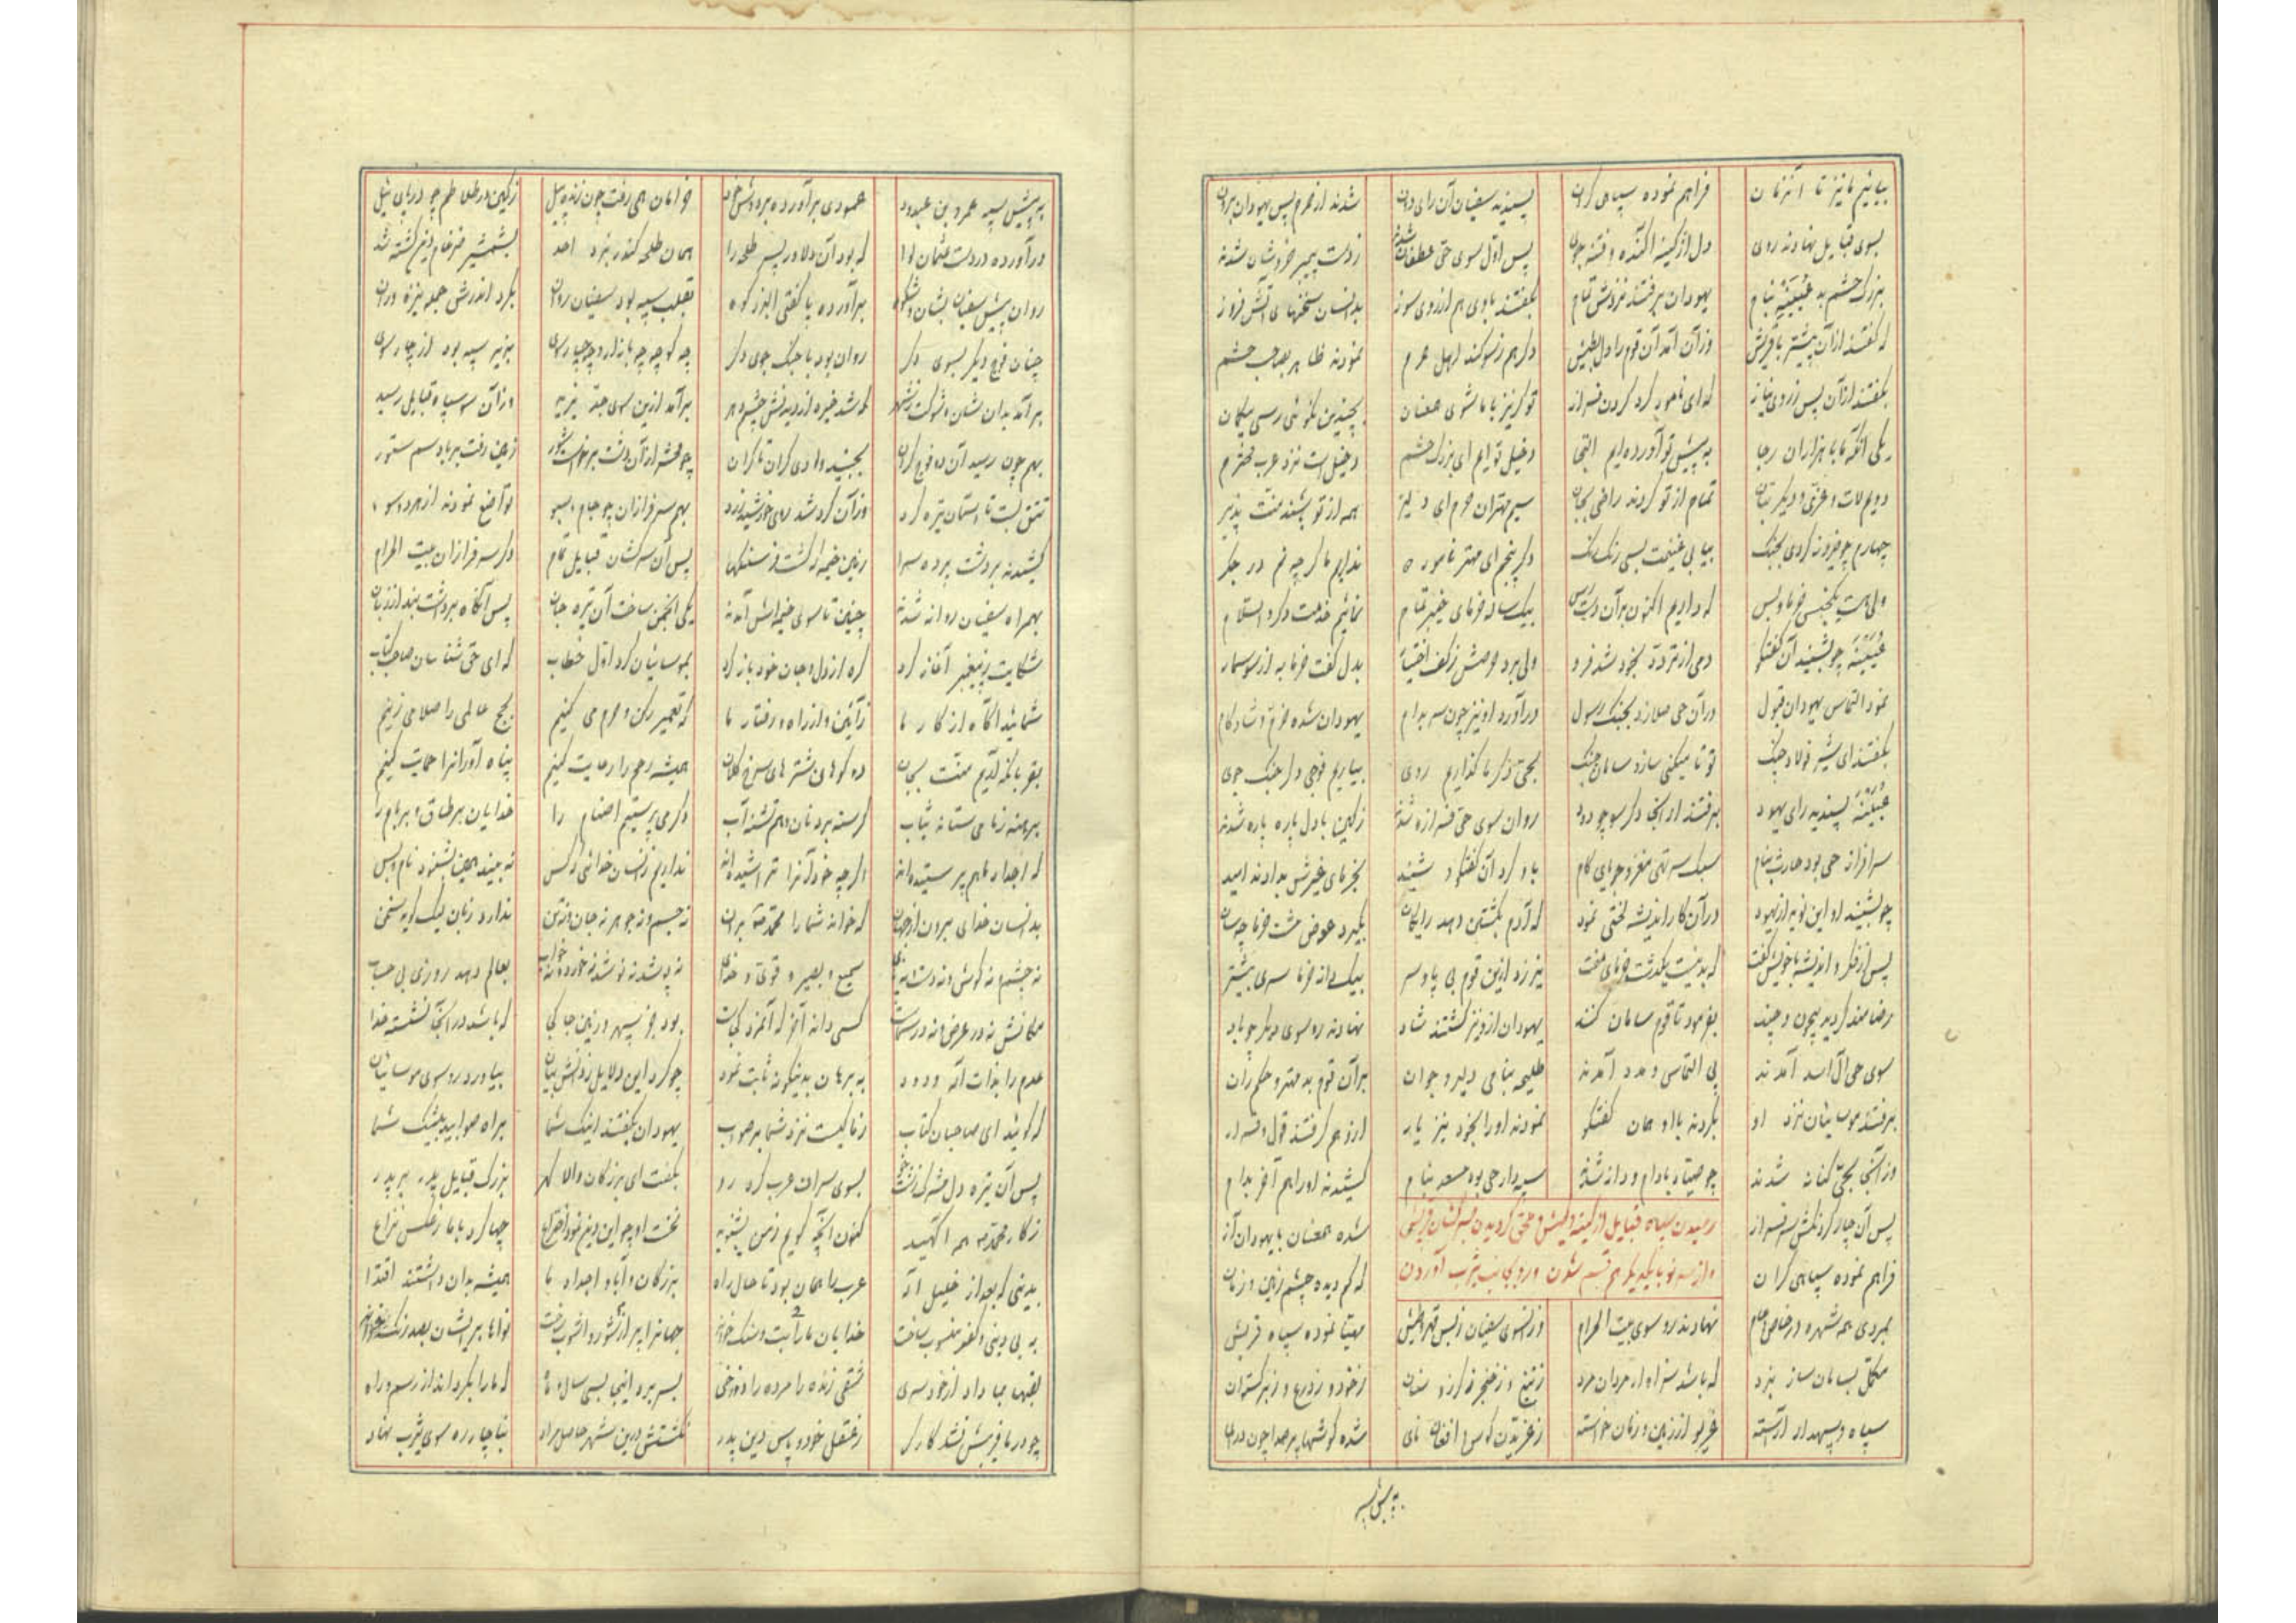 بیائیم ما نیز تا آنزمان فراهم نموده سپاهی گران پسندید سفیان آن رای دان شدند از حرم پس یهودان بران
بسوی قبایل نهادند روی دل از کینه آکنده و فتنه جوی پس اول سوی حی غطفان شدند ز دست پیمبر خروشان شدند
بزرگ حشم بد عیینه بنام یهودان برفتند نزدش تمام بگفتند با وی هم از روی سوز بدانسان سخنهای آتش فروز
که گفتند از آن پیشتر با قریش وز آن آمد آن قوم را دل بطیش دگر هم ز سوگند اهل حرم نمودند ظاهر بصاحب حشم
بگفتند از آن پس ز روی نیاز که ای نامور گرد گردن فراز تو گر نیز با ما شوی همعنان بچندین نکوئی رسی بیگمان
یکی آنکه ما با هزاران رجا به پیش تو آورده‌ایم التجا دخیل توایم ای بزرگ حشم دخیل است نزد عرب محترم
دویم لات و عزی و دیگر بتان تمام از تو گردند راضی بجان سیم مهتران حرم ای دلیر همه از تو باشند منت پذیر
چهارم چو فیروز گردی بجنگ بیابی غنیمت بسی رنگ رنگ دگر پنجم ای مهتر نامور نداریم ما گر چه نم در جگر
ولی هست یکجنس خرما و بس که داریم اکنون بر آن دسترس بیکساله خرمای خیبر تمام نمائیم خدمت دگر والسلام
عیینه چو بشنید آن گفتگو دمی از تردد بخود شد فرو ولی برد حرصش ز کف اختیار بدل گفت خرما به از سوسمار
نمود التماس یهودان قبول در آن حی صلا زد بجنگ رسول درآورد او نیز چون سر بدام یهودان شده خرم و شادکام
بگفتند ای شیر فولاد چنگ تو تا میکنی ساز و سامان جنگ بحی دگر ما گذاریم روی بیاریم فوجی دگر جنگ جوی
عیینه پسندید رای یهود برفتند از آنجا دگر سو چو دود روان سوی حی فزاره شدند ز کین با دل پاره پاره شدند
سرافراز حی بود حارث بنام سبک سر تهی مغز و جویای کام باو کرد آن گفتگو شنید بخرمای خیبرش بدادند امید
چو بشنید او این نوید از یهود در آن کار اندیشه لختی نمود که آدم بکشتن دهد رایگان بگیرد عوض مشت خرما چه سان
پس از فکر و اندیشه با خویش گفت که بد نیست یکدشت خرمای مفت نیرزد ازین قوم بی پا و سر بیکدانه خرما سری بیشتر
رضامند گردید بیچون و چند بفرمود تا قوم سامان کنند یهودان ازو نیز گشتند شاد نهادند رو سوی دیگر چو باد
سوی حی آل اسد آمدند پی التماس و مدد آمدند طلیحه بنامی دلیر و جوان بر آن قوم بد مهتر و حکمران
برفتند موسائیان نزد او بکردند با او همان گفتگو نمودند او را بخود نیز یار ازو هم گرفتند قول و قرار
وز آنجا بحی کنانه شدند چو صیاد با دام و دانه شدند سپهدار حی بود مسعود بنام کشیدند او را هم آخر بدام
رسیدن سپاه قبایل از کینه و طیش و ملحق گردیدن به سرکشان قریش
و از سر نو با یکدیگر هم قسم شدن و رو بجانب یثرب آوردن
پس آن چار گردنکش سرفراز شده همعنان با یهودان آز
فراهم نموده سپاهی گران که کم دیده چشم زمین و زمان
بمردی همه شهره در خاص و عام نهادند رو سوی بیت الحرام وز آنسوی سفیان ز بس قهر و طیش مهیا نموده سپاه قریش
مکمل بسامان ساز نبرد که باشد سزاوار مردان مرد ز تیغ و ز خنجر ز گرز و سنان ز خود و ز درع و ز برگستوان
سپاه و سپهدار آراسته غریو از زمین و زمان خواسته ز غریدن کوس و افغان نای شده گوشها پر صدا چون درای
به پیش سپه
به پیش سپه عمرو بن عبدود عمودی برآورده بر دوش خود خرامان همی رفت چون زنده پیل ز کین در تلاطم چو دریای نیل
درآورده در دست عثمان لوا که بود آن دلاور پسر طلحه را همان طلحه کندر نبرد احد بشمشیر ضرغام دین کشته شد
روان پیش سفیان بشان و شکوه برآورده پا گفتی البرز کوه بقلب سپه بود سفیان روان بگرد اندرش جمله نیزه وران
چنان فوج دیگر بسوی دگر روان بود با جنگ جوی دگر چه کوچه چه بازار و چه چارسوی بزیر سپه بود از چارسوی
برآمد بدان شان و شوکت ز شهر که شد خیره از دیدنش چشم دهر برآمد ازین سوی وز آن سو سپاه قبایل رسید
بهم چون رسید آن دو فوج گران بجنبید وادی کران تا کران چو محشر از آن دشت برخواست شور زمین رفت بر باد سم ستور
تتق بست تا آسمان تیره گرد وز آن گرد شد روی خورشید زرد بهم سرفرازان چو جام و سبو تواضع نمودند از هر دو سو
کشیدند بر دشت پرده سرا زمین خیمه زد گشت فرسنگها پس آن سرکشان قبایل تمام دگر سرفرازان بیت الحرام
بهمراه سفیان روانه شدند چنین تا سوی خیمه‌اش آمدند یکی انجمن ساخت آن تیره جان پس آنگاه برداشت بند از زبان
شکایت ز پیغمبر آغاز کرد گره از دل و جان خود باز کرد بموسائیان کرد اول خطاب که ای حق شناسان صاحب کتاب
شمائید آگاه از کار ما ز آئین و از راه و رفتار ما که تعمیر رکن و حرم می کنیم بحج عالمی را صلا می زنیم
بقربانگه آریم منت بجان ده کوهان شترهای سرخ کلان همیشه رحم را رعایت کنیم پناه آورانرا حمایت کنیم
برهنه ز ما می ستاند ثیاب گرسنه برد نان و هم تشنه آب دگر می پرستیم اصنام را خدایان بر طاق و بر بام را
که اجداد ما هم پرستیده‌اند اگر چه خود آنرا تراشیده‌اند نداریم زانسان خدائی ز کس نه بیند همین بشنود نام و بس
بدانسان خدای برون از جهان که خواند شما را محمد بر آن نه جسم و نه جوهر نه جان و نه تن ندارد زبان لیک گوید سخن
نه چشم و نه گوش و نه دست و نه پای سمیع و بصیر و قوی و خدای نه پوشد نه نوشد نه خورد و نه خواب بعالم دهد روزی بی حساب
مکانش نه در عرض و نه در سماست کسی داند آخر که آنمزد کجاست بود جز سپهر و زمین جا کجا که باشد در آنجا نشسته خدا
عدم را بذات آله ودود به برهان بدینگونه ثابت نمود چو کرد این دلایل ز دانش بیان بیاورد رو سوی موسائیان
که گوئید ای صاحبان کتاب ز ما کیست نزد شما بر صواب یهودان بگفتند اینک شما براه صوابید بیشک شما
پس آن تیره دل مشرک زشت خو بسوی سران عرب کرد رو بگفت ای بزرگان والا گهر بزرگ قبایل پدر بر پدر
ز کار محمد همه آگهید کنون آنچه گویم ز من بشنوید نخست او چو این دین نمود اختراع چها کرد با ما ز عکس نزاع
بدینی که بعد از خلیل اله عرب را همان بود تا حال راه بزرگان و آباء و اجداد ما همیشه بدان داشتند اقتدا
به بی دینی و کفر منسوب ساخت خدایان ما را بت و سنگ خواند جهانرا پر از شور و آشوب ساخت
بقهر ما داد از خودسری شقی زنده را مرده را دوزخی بسر برد اینجا بسی سال و ماه که ما را بگرداند از رسم و راه
چو در ما فریبش نشد کارگر ز عقل خود و پاس دین پدر نگشتش درین شهر حاصل مراد بناچار ره سوی یثرب نهاد